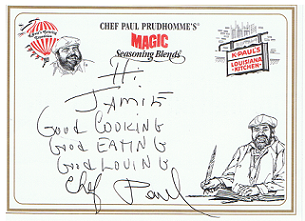 CHEF PAUL PRUDHOMME'S®
MAGIC
Seasoning Blends®
K-PAUL'S
LOUISIANA
KITCHEN
Hi
JAMIE
Good COOKING
Good EATING
Good LOVING
Chef Paul